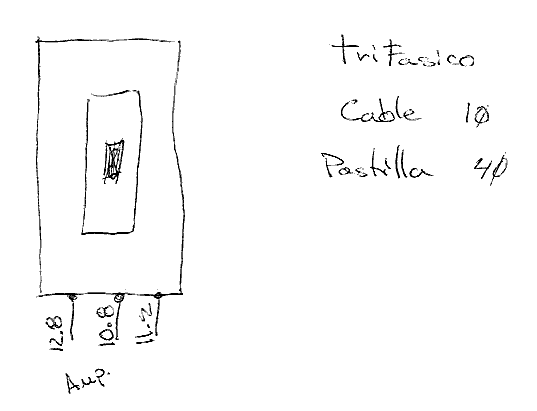 Trifasico
Cable 10
Pastilla 40
12.8
10.8
11.2
Amp.